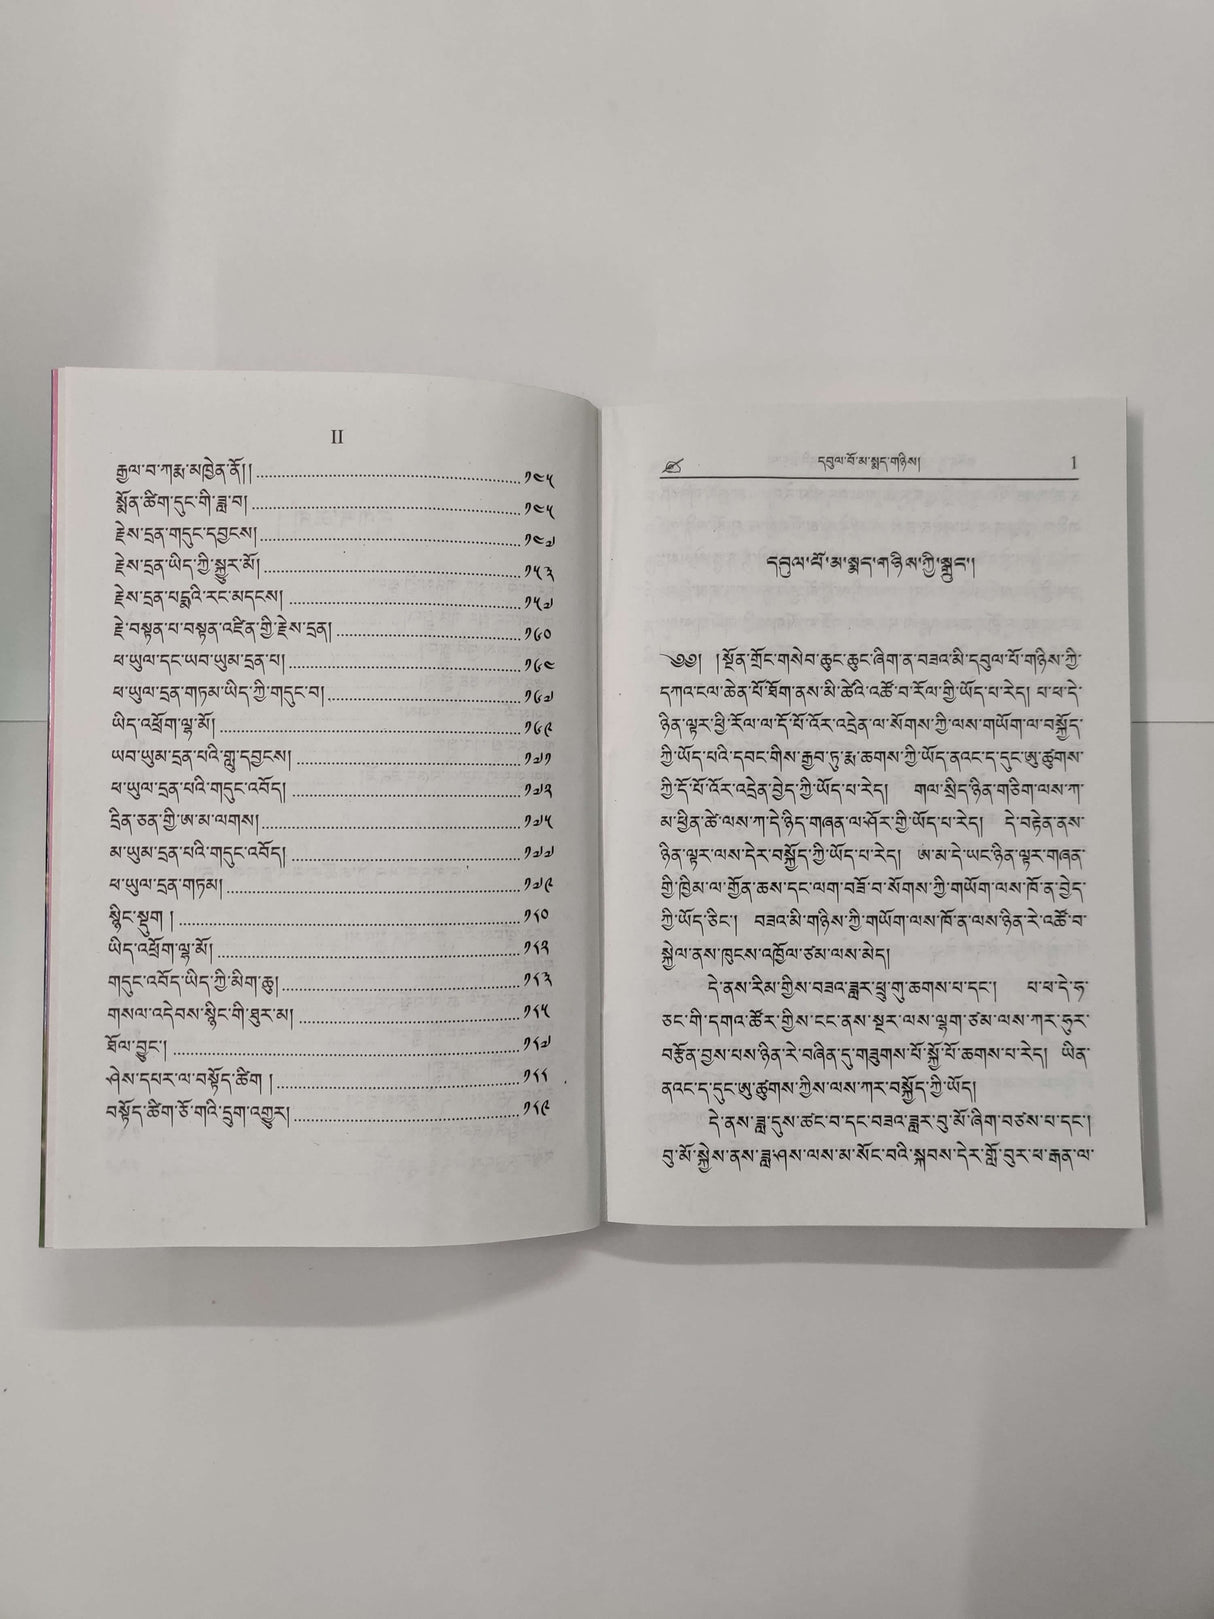 II
རྒྱལ་བ་ཀརྨ་མཁྱེན་ནོ།། ༡༤༥
སྨོན་ཚིག་དུང་གི་ཟླ་བ། ༡༤༥
རྗེས་དྲན་གདུང་དབྱངས། ༡༤༧
རྗེས་དྲན་ཡིད་ཀྱི་སྐྱུར་མོ། ༡༥༣
རྗེས་དྲན་པདྨའི་རང་མདངས། ༡༥༧
རྗེ་བསྟན་པ་བསྟན་འཛིན་གྱི་རྗེས་དྲན། ༡༦༠
ཕ་ཡུལ་དང་ཡབ་ཡུམ་དྲན་པ། ༡༦༤
ཕ་ཡུལ་དྲན་གཏམ་ཡིད་ཀྱི་གདུང་བ། ༡༦༧
ཡིད་འཕྲོག་ལྷ་མོ། ༡༦༩
ཡབ་ཡུམ་དྲན་པའི་གླུ་དབྱངས། ༡༧༡
ཕ་ཡུལ་དྲན་པའི་གདུང་འབོད། ༡༧༣
དྲིན་ཅན་གྱི་ཨ་མ་ལགས། ༡༧༥
མ་ཡུམ་དྲན་པའི་གདུང་འབོད། ༡༧༧
ཕ་ཡུལ་དྲན་གཏམ། ༡༧༩
སྙིང་སྡུག ། ༡༨༠
ཡིད་འཕྲོག་ལྷ་མོ། ༡༨༢
གདུང་འབོད་ཡིད་ཀྱི་མིག་ཆུ། ༡༨༣
གསལ་འདེབས་སྙིང་གི་ཐུར་མ། ༡༨༥
ཐོལ་བྱུང་། ༡༨༧
ཤེས་དཔར་ལ་བསྟོད་ཚིག ། ༡༨༨
བསྟོད་ཚིག་ཅོ་གའི་དྲུག་འགྱུར། ༡༨༩
དབུལ་པོ་མ་སྨད་གཉིས། 1
དབུལ་པོ་མ་སྨད་གཉིས་ཀྱི་སྒྲུང་།
༄༅། །སྔོན་གྲོང་གསེབ་ཆུང་ཆུང་ཞིག་ན་བཟའ་མི་དབུལ་པོ་གཉིས་ཀྱི་
དཀའ་ངལ་ཆེན་པོ་ཐོག་ནས་མི་ཚེའི་འཚོ་བ་རོལ་གྱི་ཡོད་པ་རེད། པ་ཕ་དེ་
ཉིན་ལྟར་ཕྱི་རོལ་ལ་དོ་པོ་འོར་འདྲེན་ལ་སོགས་ཀྱི་ལས་གཡོག་ལ་བསྐྱོད་
ཀྱི་ཡོད་པའི་དབང་གིས་རྒྱབ་ཏུ་རྨ་ཆགས་ཀྱི་ཡོད་ནའང་ད་དུང་ཨུ་ཚུགས་
ཀྱི་དོ་པོ་འོར་འདྲེན་བྱེད་ཀྱི་ཡོད་པ་རེད། གལ་སྲིད་ཉིན་གཅིག་ལས་ཀ་
མ་ཕྱིན་ཚེ་ལས་ཀ་དེ་ཉིད་གཞན་ལ་ཤོར་གྱི་ཡོད་པ་རེད། དེ་བརྟེན་ནས་
ཉིན་ལྟར་ལས་དེར་བསྐྱོད་ཀྱི་ཡོད་པ་རེད། ཨ་མ་དེ་ཡང་ཉིན་ལྟར་གཞན་
གྱི་ཁྱིམ་ལ་གྱོན་ཆས་དང་ལག་བཟོ་བ་སོགས་ཀྱི་གཡོག་ལས་ཁོ་ན་བྱེད་
ཀྱི་ཡོད་ཅིང་། བཟའ་མི་གཉིས་ཀྱི་གཡོག་ལས་ཁོ་ན་ལས་ཉིན་རེ་འཚོ་བ་
སྐྱེལ་ནས་ཁུངས་འཁྱོལ་ཙམ་ལས་མེད།
དེ་ནས་རིམ་གྱིས་བཟའ་ཟླར་ཕྲུ་གུ་ཆགས་པ་དང་། པ་ཕ་དེ་ཧ་
ཅང་གི་དགའ་ཚོར་གྱིས་ངང་ནས་སྔར་ལས་ལྷག་ཙམ་ལས་ཀར་ཧུར་
བརྩོན་བྱས་པས་ཉིན་རེ་བཞིན་དུ་གཟུགས་པོ་སྐྱོ་པོ་ཆགས་པ་རེད། ཡིན་
ནའང་ད་དུང་ཨུ་ཚུགས་ཀྱིས་ལས་ཀར་བསྐྱོད་ཀྱི་ཡོད།
དེ་ནས་ཟླ་དུས་ཚང་བ་དང་བཟའ་ཟླར་བུ་མོ་ཞིག་བཙས་པ་དང་།
བུ་མོ་སྐྱེས་ནས་ཟླ་ཤས་ལས་མ་སོང་བའི་སྐབས་དེར་གློ་བུར་ཕ་རྒན་ལ་